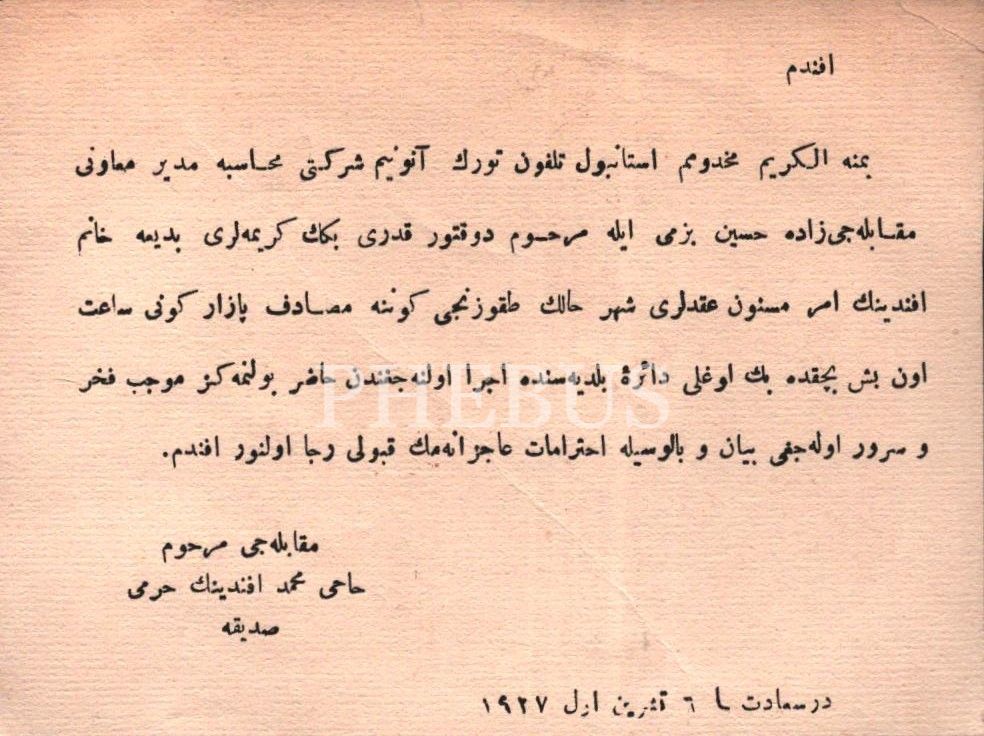 افندم
بمنه الكريم مخدومم استانبول تلفون تورك آنونيم شركتى محاسبه مدير معاونى
مقابله‌جى‌زاده حسين بزمى ايله مرحوم دوقتور قدرى بكك كريمه‌لرى بديعه خانم
افندينك امر مسنون عقدلرى شهر حالك طقوزنجى كوننه مصادف پازار كونى ساعت
اون بش بچقده بك اوغلى دائرۀ بلديه‌سنده اجرا اولنه‌جغندن حاضر بولنمه‌كز موجب فخر
و سرور اوله‌جغى بيان و بالوسيله احترامات عاجزانه‌مك قبولى رجا اولنور افندم.
مقابله‌جى مرحوم
حاجى محمد افندينك حرمى
صديقه
درسعادت ٦ تشرين اول ١٩٢٧
PHEBUS